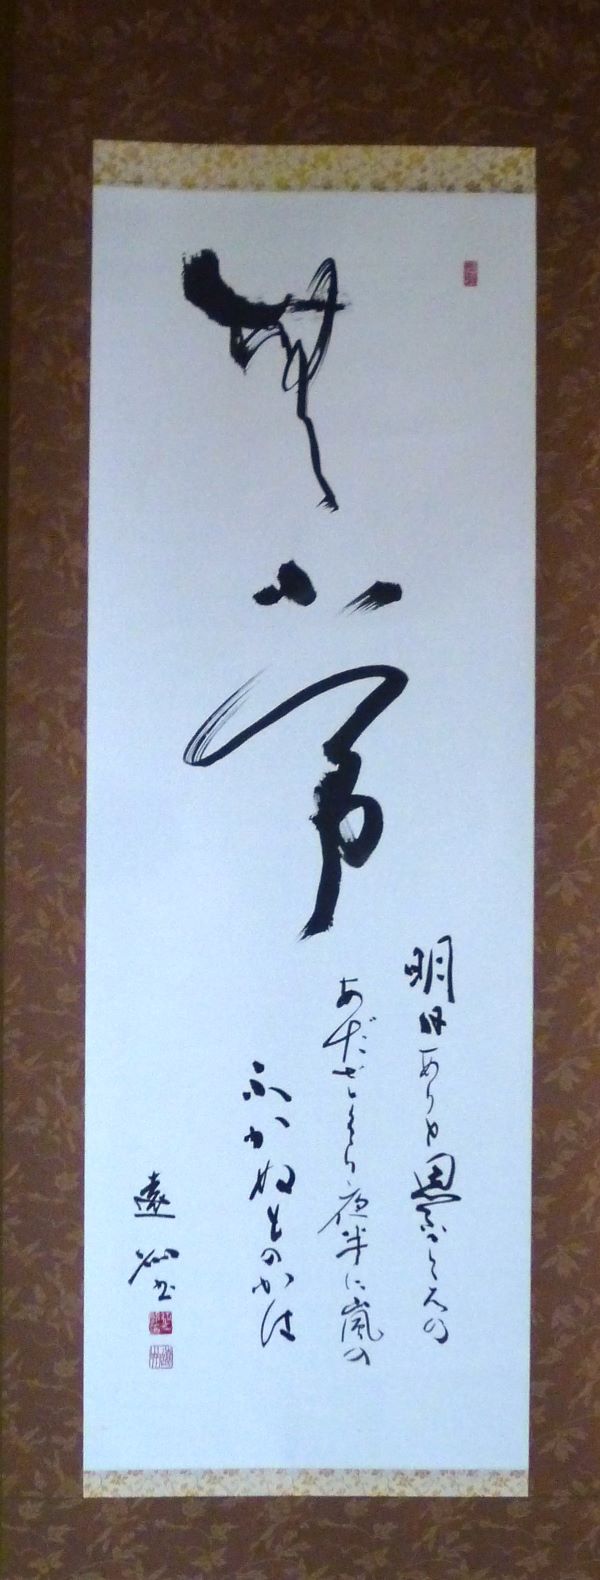 無常
明日ありと思ふ心の
あだざくら夜半に嵐の
ふかぬものかは
遠